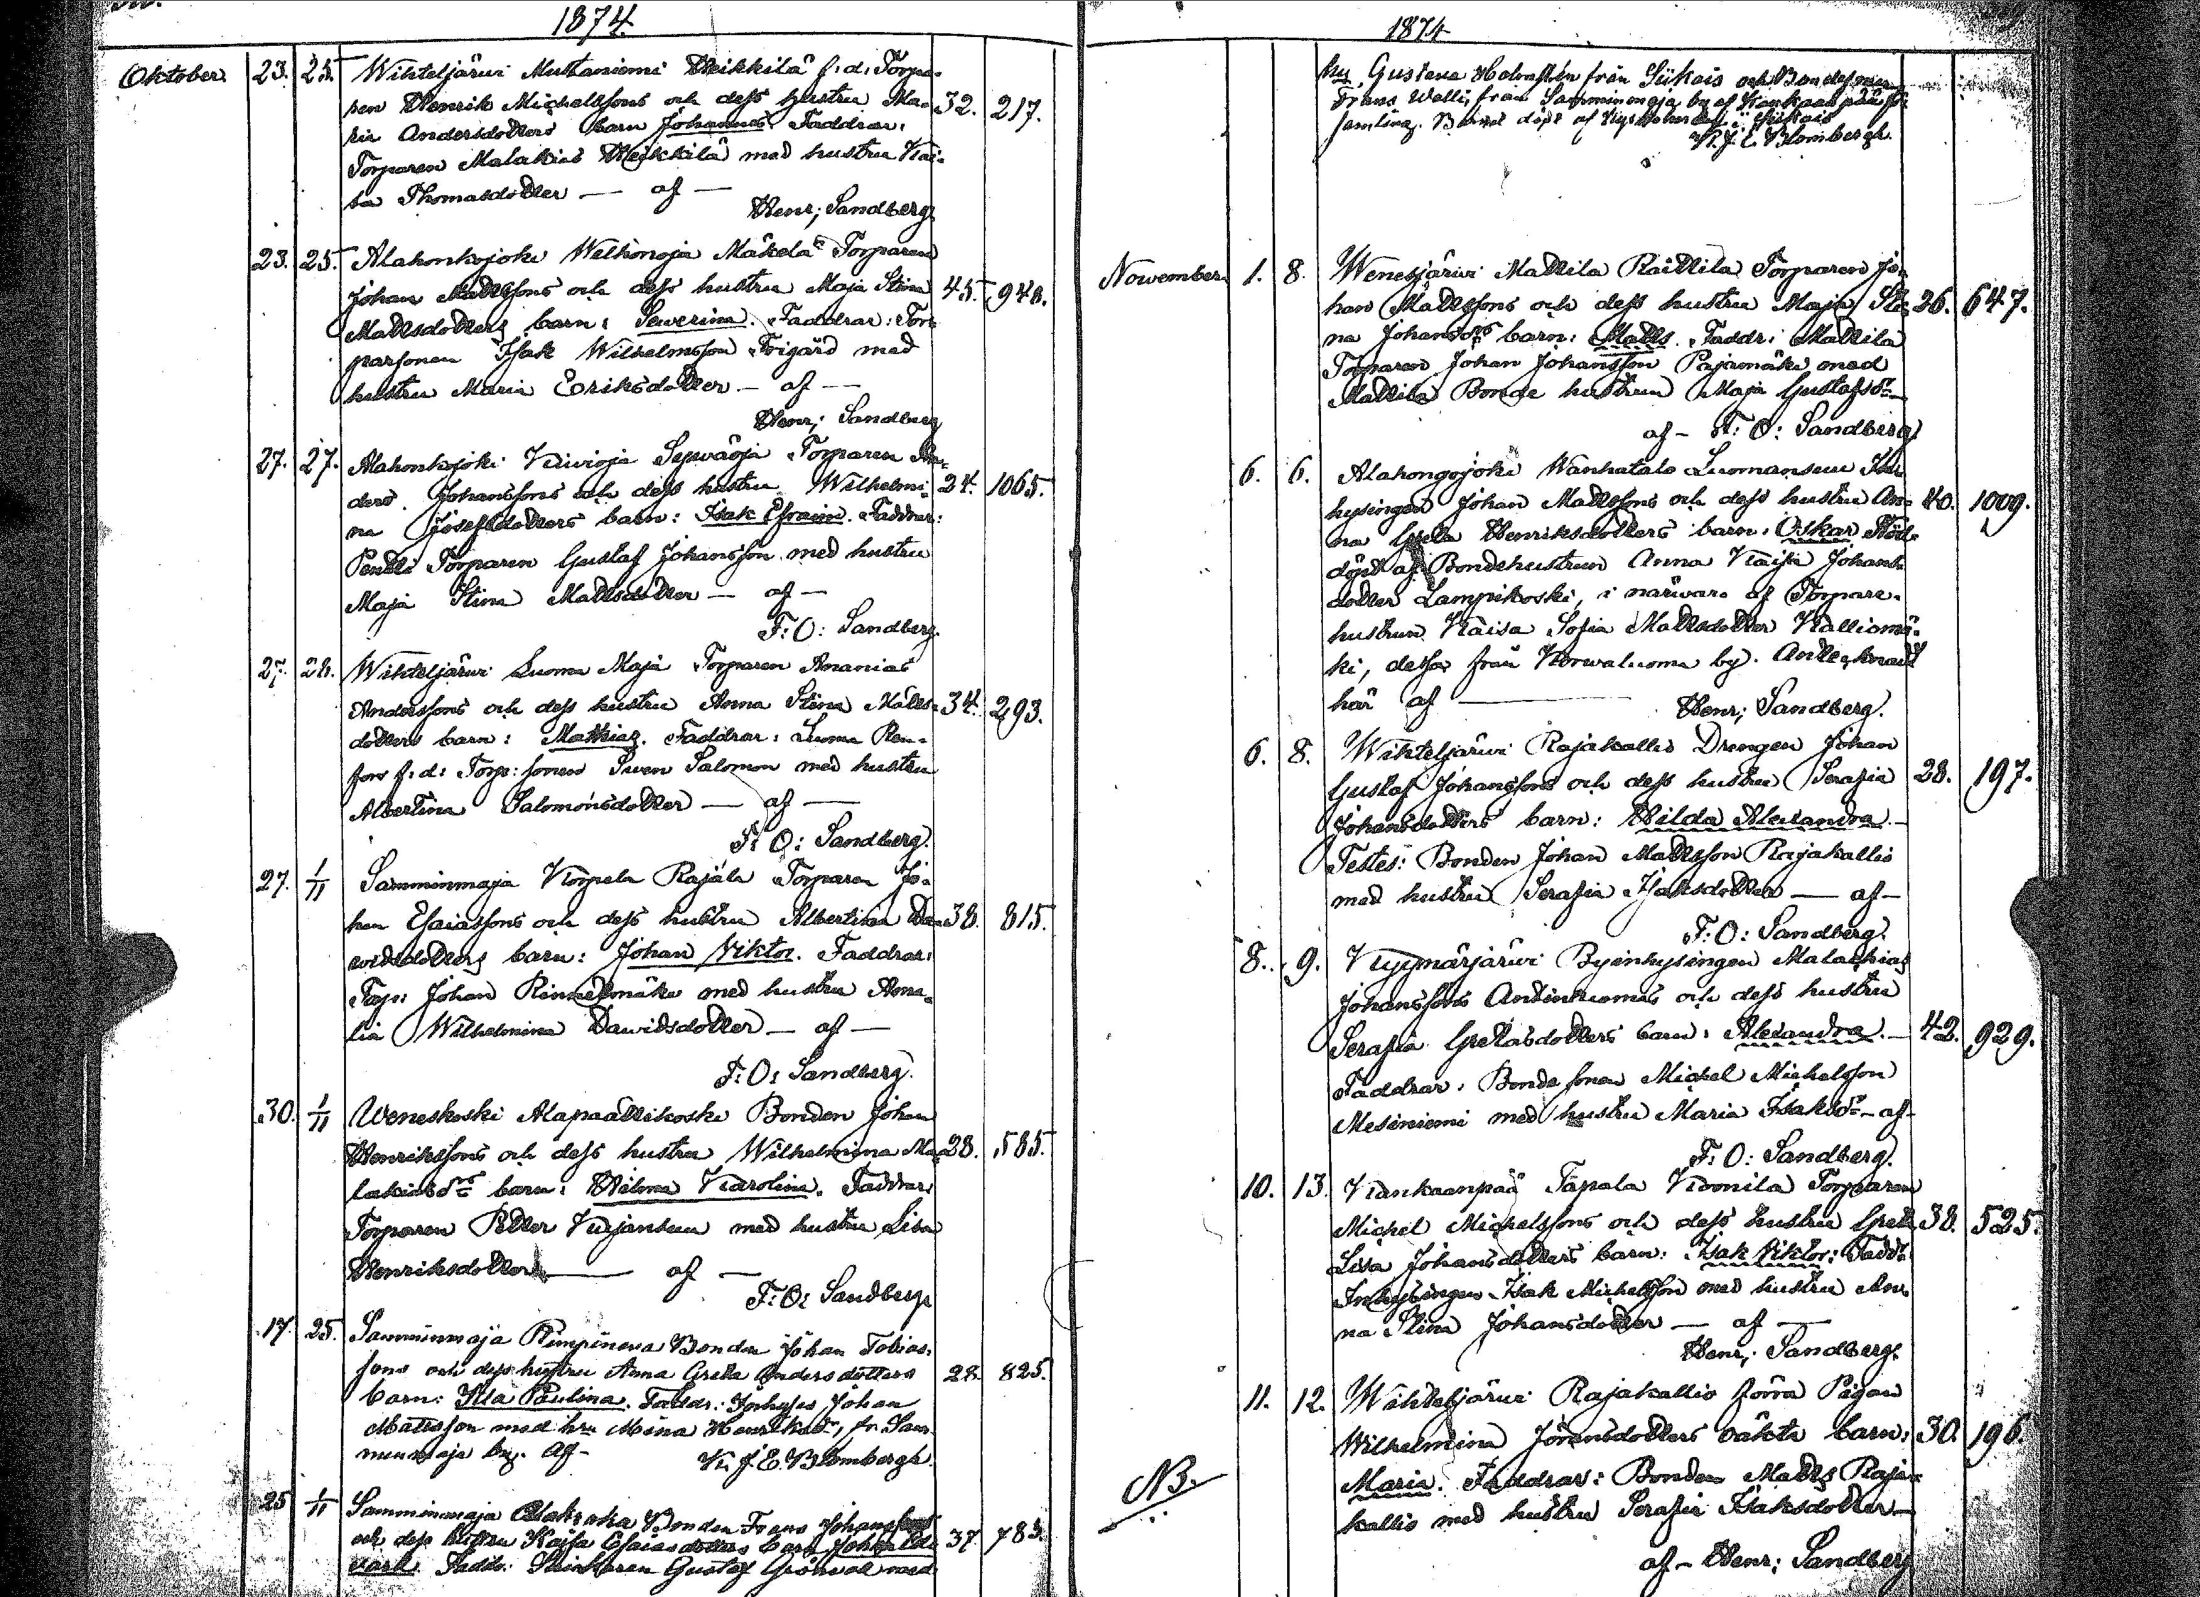 1874.
Oktober 23. 25. Wihteljärwi Mustaniemi Heikkilä f. d. Torpa-
ren Henrik Michelssons och dess hustru Ma- 32. 217.
ria Andersdotters barn Johannes. Faddrar:
Torparen Malakias Heikkilä med hustru Kai-
sa Thomasdotter — af —
Henr; Sandberg.
23. 25. Alahonkojoki Welhonoja Mäkelä Torparen
Johan Mattssons och dess hustru Maja Stina 45. 948.
Mattsdotters barn: Sewerina. Faddrar: Tor-
parsonen Isak Wilhelmsson Frigård med
hustru Maria Eriksdotter — af —
Henr; Sandberg
27. 27. Alahonkojoki Kiwioja Sepwäoja Torparen An-
ders Johanssons och dess hustru Wilhelmi- 24. 1065.
na Josefsdotters barn: Isak Efraim. Faddrar:
Pentti Torparen Gustaf Johansson med hustru
Maja Stina Mattsdotter — af —
F: O: Sandberg.
27. 28. Wihteljärwi Luoma Maja Torparen Ananias
Anderssons och dess hustru Anna Stina Matts- 34. 293.
dotters barn: Mathias. Faddrar: Luoma
f: d: Torp: sonen Swen Salomon med hustru
Albertina Salomonsdotter — af —
F: O: Sandberg.
27. 1/11 Samminmaja Korpela Rajala Torparen Jo-
han Esaiassons och dess hustru Albertina Da- 38. 815.
widsdotters barn: Johan Viktor. Faddrar:
Torp: Johan Rinnetmäki med hustru Ama-
lia Wilhelmina Dawidsdotter — af —
F: O: Sandberg.
30. 1/11 Weneskoski Alapaattikoski Bonden Johan
Henrikssons och dess hustru Wilhelmina Ma- 28. 585.
lakiasdr barn: Hilma Karolina. Faddrar:
Torparen Petter Kujansuu med hustru Lisa
Henriksdotter — af —
F: O: Sandberg
17. 25. Samminmaja Rimpineva Bonden Johan Tobias-
sons och dess hustru Anna Greta Andersdotters 28. 825.
barn: Ida Paulina. Faddr: Inhyses Johan
Mattsson med hru Mina Henriksdr, fr. Sam-
minmaja by. Af — K. J. E. Blombergh.
25 1/11 Samminmaja Bonden Frans Johanssons
och dess hustru Kajsa Esaiasdotters barn Johan Ed- 37. 783.
vard Faddr: Skinnaren Gustaf Grönwal med
1874
hu Gustava Holmsten från Siikais och Bondesonen
Frans Walli, från Samminmaja by af Kankaanpää för-
samling. Barnet döpt af i Siikais
K. J. E. Blombergh.
Nowember 1. 8. Wenesjärwi Mattila Raittila Torparen Jo-
han Mattssons och dess hustru Maja Sti- 26. 647.
na Johansdrs barn: Matts. Faddr: Mattila
Torparen Johan Johansson Pajumäki med
Mattila Bonde hustrun Maja Gustafsdr —
af — F: O: Sandberg
6. 6. Alahongojoki Wanhatalo Luomansuu In-
hysingen Johan Mattssons och dess hustru An- 40. 1009.
na Greta Henriksdotters barn: Oskar Nöd-
döpt af Bondehustrun Anna Kaisa Johans-
dotter Lampikoski, i närwaro af Torpare-
hustrun Kaisa Sofia Mattsdotter Kalliomä-
ki, dessa från Korwaluoma by. Antecknadt
här af — Henr; Sandberg.
6. 8. Wihteljärwi Rajakallio Drengen Johan
Gustaf Johanssons och dess hustru Serafia 28. 197.
Johansdotters barn: Hilda Alexandra. —
Testes: Bonden Johan Mattsson Rajakallio
med hustru Serafia Isaksdotter — af —
F: O: Sandberg.
8. 9. Kyymärjärwi Byeinhysingen Malachias
Johanssons Antinluomas och dess hustru
Serafia Gretasdotters barn: Alexandra. — 42. 929.
Faddrar: Bonde sonen Michel Michelsson
Mesiniemi med hustru Maria Isaksdr — af —
F: O: Sandberg.
10. 13. Kankaanpää Tapala Koonila Torparen
Michel Michelssons och dess hustru Greta 38. 525.
Lisa Johansdotters barn: Isak Viktor: Faddr:
Inhysingen Isak Michelsson med hustru An-
na Stina Johansdotter — af —
Henr; Sandberg.
11. 12. Wihteljärwi Rajakallio förra Pigan
Wilhelmina Jöransdotters oäkta barn: 30. 196.
NB. Maria. Faddrar: Bonden Matts Raja-
kallio med hustru Serafia Isaksdotter —
af — Henr; Sandberg